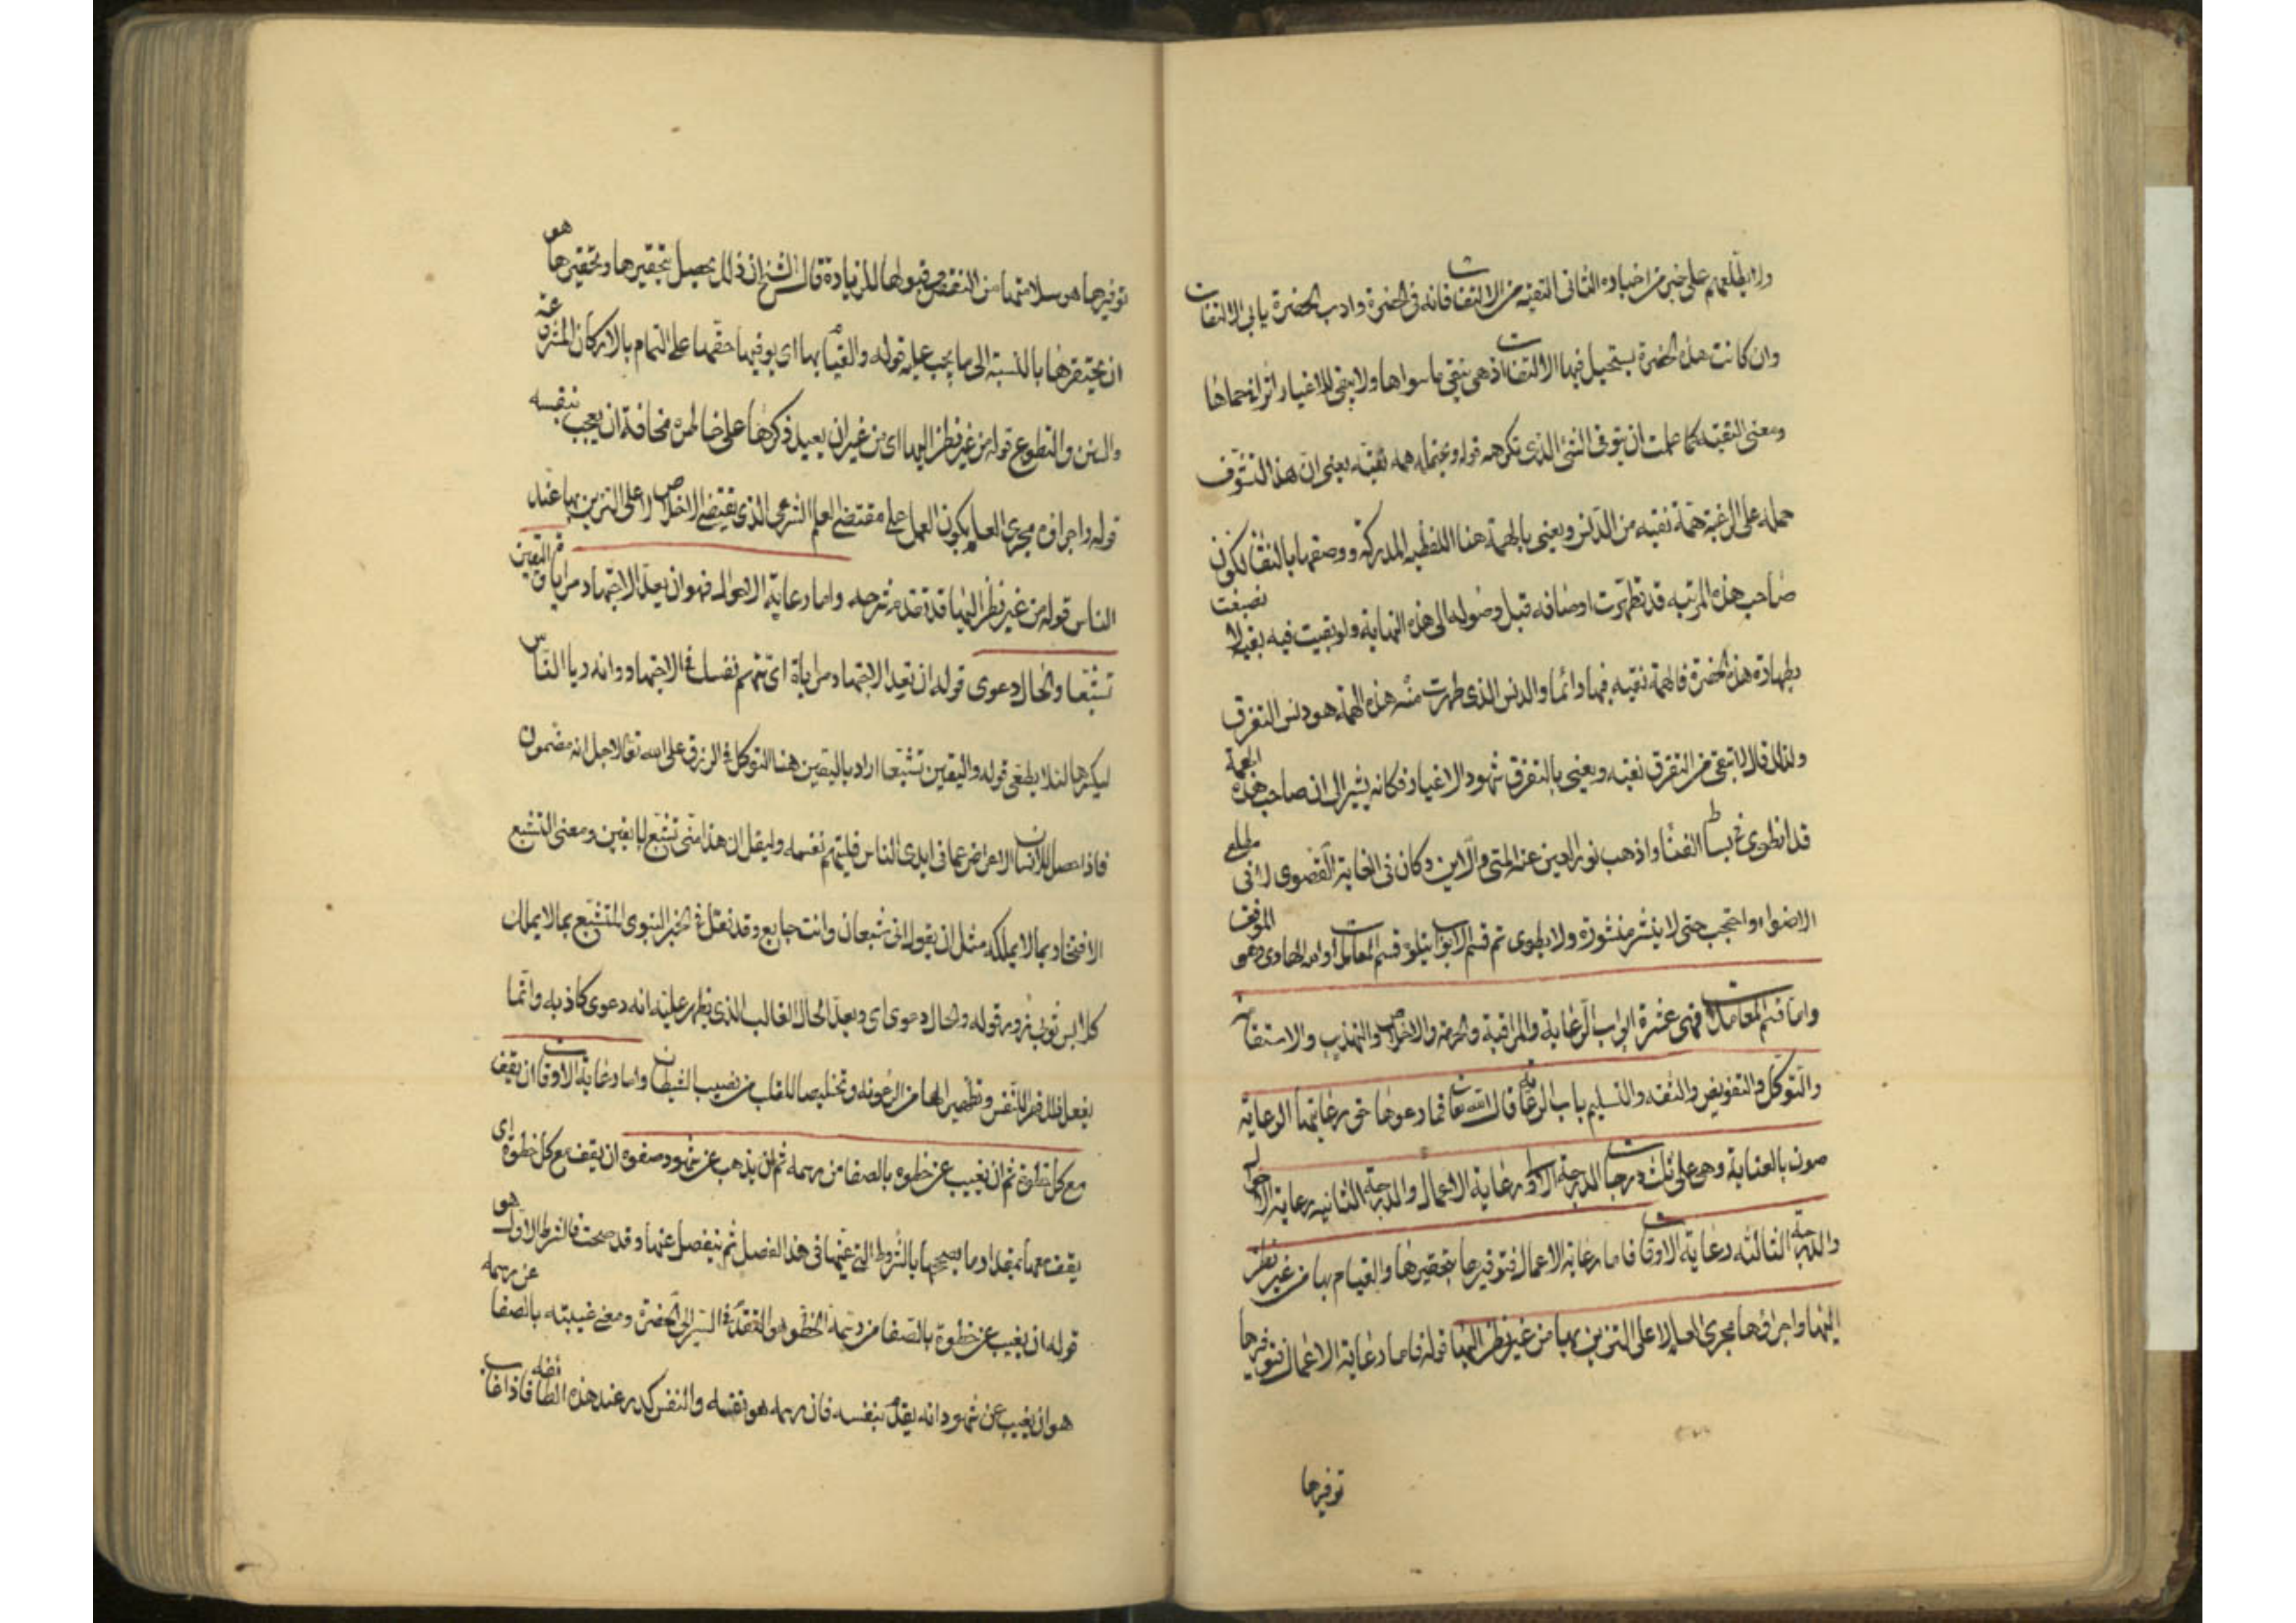 ولا يطلعهم على خبر من اخباره الثانى التقيه من الالتفات فانه فى الحضرة وادب الحضرة يابى الالتفات
وان كانت هذه الحضرة يستحيل فيها الالتفات اذ هى تنفى ما سواها ولا يبقى للاغيار اثرا فى حماها
ومعنى التقيه كما علمت ان يتوقى الشئ الذى تكرهه قوله ويحتمله همه نقيه يعنى ان هذا التشوف
حمله على الرغبة همة نقيه من الدنس ويعنى بالهمة هنا اللطيفه المدركة ووصفها بالنقا لكون
صاحب هذه المرتبه قد تطهرت اوصافه قبل وصوله الى هذه النهاية ولو بقيت فيه بقية لا نصبغت
بطهارة هذه الحضرة فالهمة نقيه فيها دائما والدنس الذى طهرت منه هذه الهمة هو دنس التفرق
ولذلك قال لا تبقى من التفرق نقيه ويعنى بالتفرق شهود الاغيار فكانه يشير الى ان صاحب هذه الهمة
قد انطوى فى بساط الفنا واذهب نور العين عنه المتى والاين وكان فى الغاية القصوى لا فى مطلع
الاضواء واحتجب حتى لا ينشر منشوره ولا يطوى تم قسم الابواب يتلوه قسم المعاملات
واما قسم المعاملات فهى عشرة ابواب الرعاية والمراقبة والحرمة والاخلاص والتهذيب والاستقامة
والتوكل والتفويض والثقه والتسليم باب الرعاية قال الله تعالى فما رعوها حق رعايتها الرعاية
صون بالعناية وهى على ثلث درجات الدرجة الاولى رعاية الاعمال والدرجة الثانيه رعاية الاحوال
والدرجة الثالثه رعاية الاوقات فاما رعاية الاعمال فتوفيرها بتحقيرها والقيام بها من غير نظر
اليها واجراؤها مجرى العلم لا على التزين بها من غير نظر اليها قوله فاما رعاية الاعمال فتوفيرها
توفيرها
توفيرها هو سلامتها من النقص وقبولها للزيادة قال الشيخ ان ذلك يحصل بتحقيرها وتحقيرها هو
ان يحتقرها بالنسبة الى ما يجب عليه قوله والقيام بها اى يوفيها حقها على التمام بالاركان المشروعة
والسنن والتطوع قوله من غير نظر اليها اى من غير ان يعيد ذكرها على خاطره مخافة ان يعجب بنفسه
قوله واجراؤه مجرى العلم يكون العمل على مقتضى العلم الشرعى الذى يقتضى الاخلاص لا على التزين بها عند
الناس قوله من غير نظر اليها قد تقدم شرحه واما رعاية الاحوال فهو ان يعد الاجتهاد مراياة واليقين
تشبعا والحال دعوى قوله ان يعد الاجتهاد مراياة اى يتهم نفسك فى الاجتهاد وانه ريا الناس
ليكرها لئلا يطغى قوله واليقين تشبعا اراد باليقين هنا التوكل فى الرزق على الله تعالى لاجل انه مضمون
فاذا حصل للانسان الاعراض عما فى ايدى الناس فليتهم نفسه وليقل ان هذا منى تشبع لا يقين ومعنى التشبع
الافتخار بما لا يملكه مثل ان يقول انى شبعان وانت جايع وقد نقل فى الخبر النبوى المتشبع بما لا يملك
كلابس ثوبى زور قوله والحال دعوى اى ويعد الحال الغالب الذى يظهر عليه انه دعوى كاذبه وانما
يفعل ذلك قهرا للنفس وتطهيرا لها من الرعونه وتخليصا للقلب من نصيب الشيطان واما رعاية الاوقات ان يقف
مع كل خطوة ثم ان يغيب عن خطوه بالصفا من رسمه ثم ان يذهب عن شهود صفوه ان يقف مع كل خطوة اى
يقف معها بمقدار ما يصححها بالشروط التى عينها فى هذا الفصل ثم ينفصل عنها وقد صحت فالشرط الاول هو
قوله ان يغيب عن خطوة بالصفا من رسمه الخطو هو التقدم فى السير الى الحضرة ومعنى غيبته بالصفا عن رسمه
هو ان يغيب عن شهود انه يقدم بنفسه فان رسمه هو نفسه والنفس كدر عند هذه الطائفة فاذا غاب